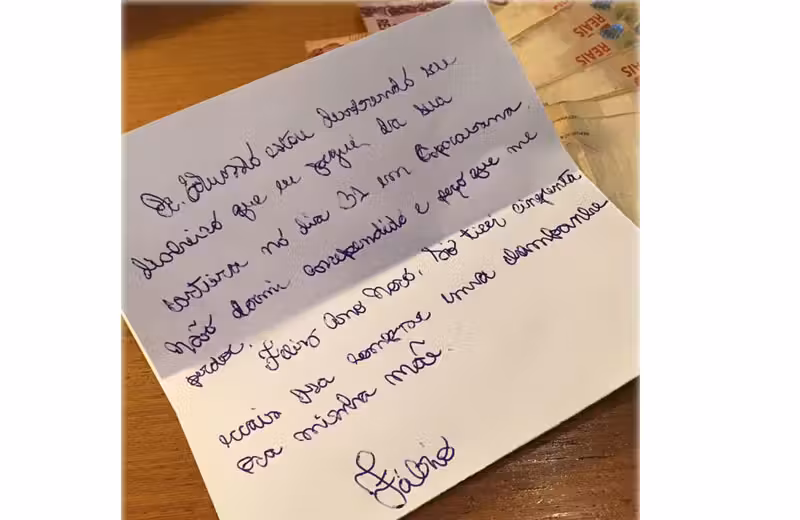 REAIS
REAIS
REAIS
Sr. Eduardo estou devolvendo seu
dinheiro que eu peguei da sua
carteira no dia 31 em Copacabana.
Não dormi arrependido e peço que me
perdoe. Feliz Ano Novo. Só tirei cinquenta
reais pra comprar uma champanhe
pra minha mãe.
Fábio